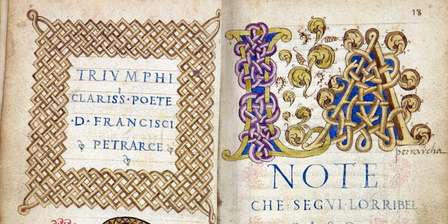 TRIVMPHI
I
CLARISS · POETE
· D · FRANCISCI
PETRARCE
18
LA
petrarcha
NOTE
CHE SEGVI LORRIBEL